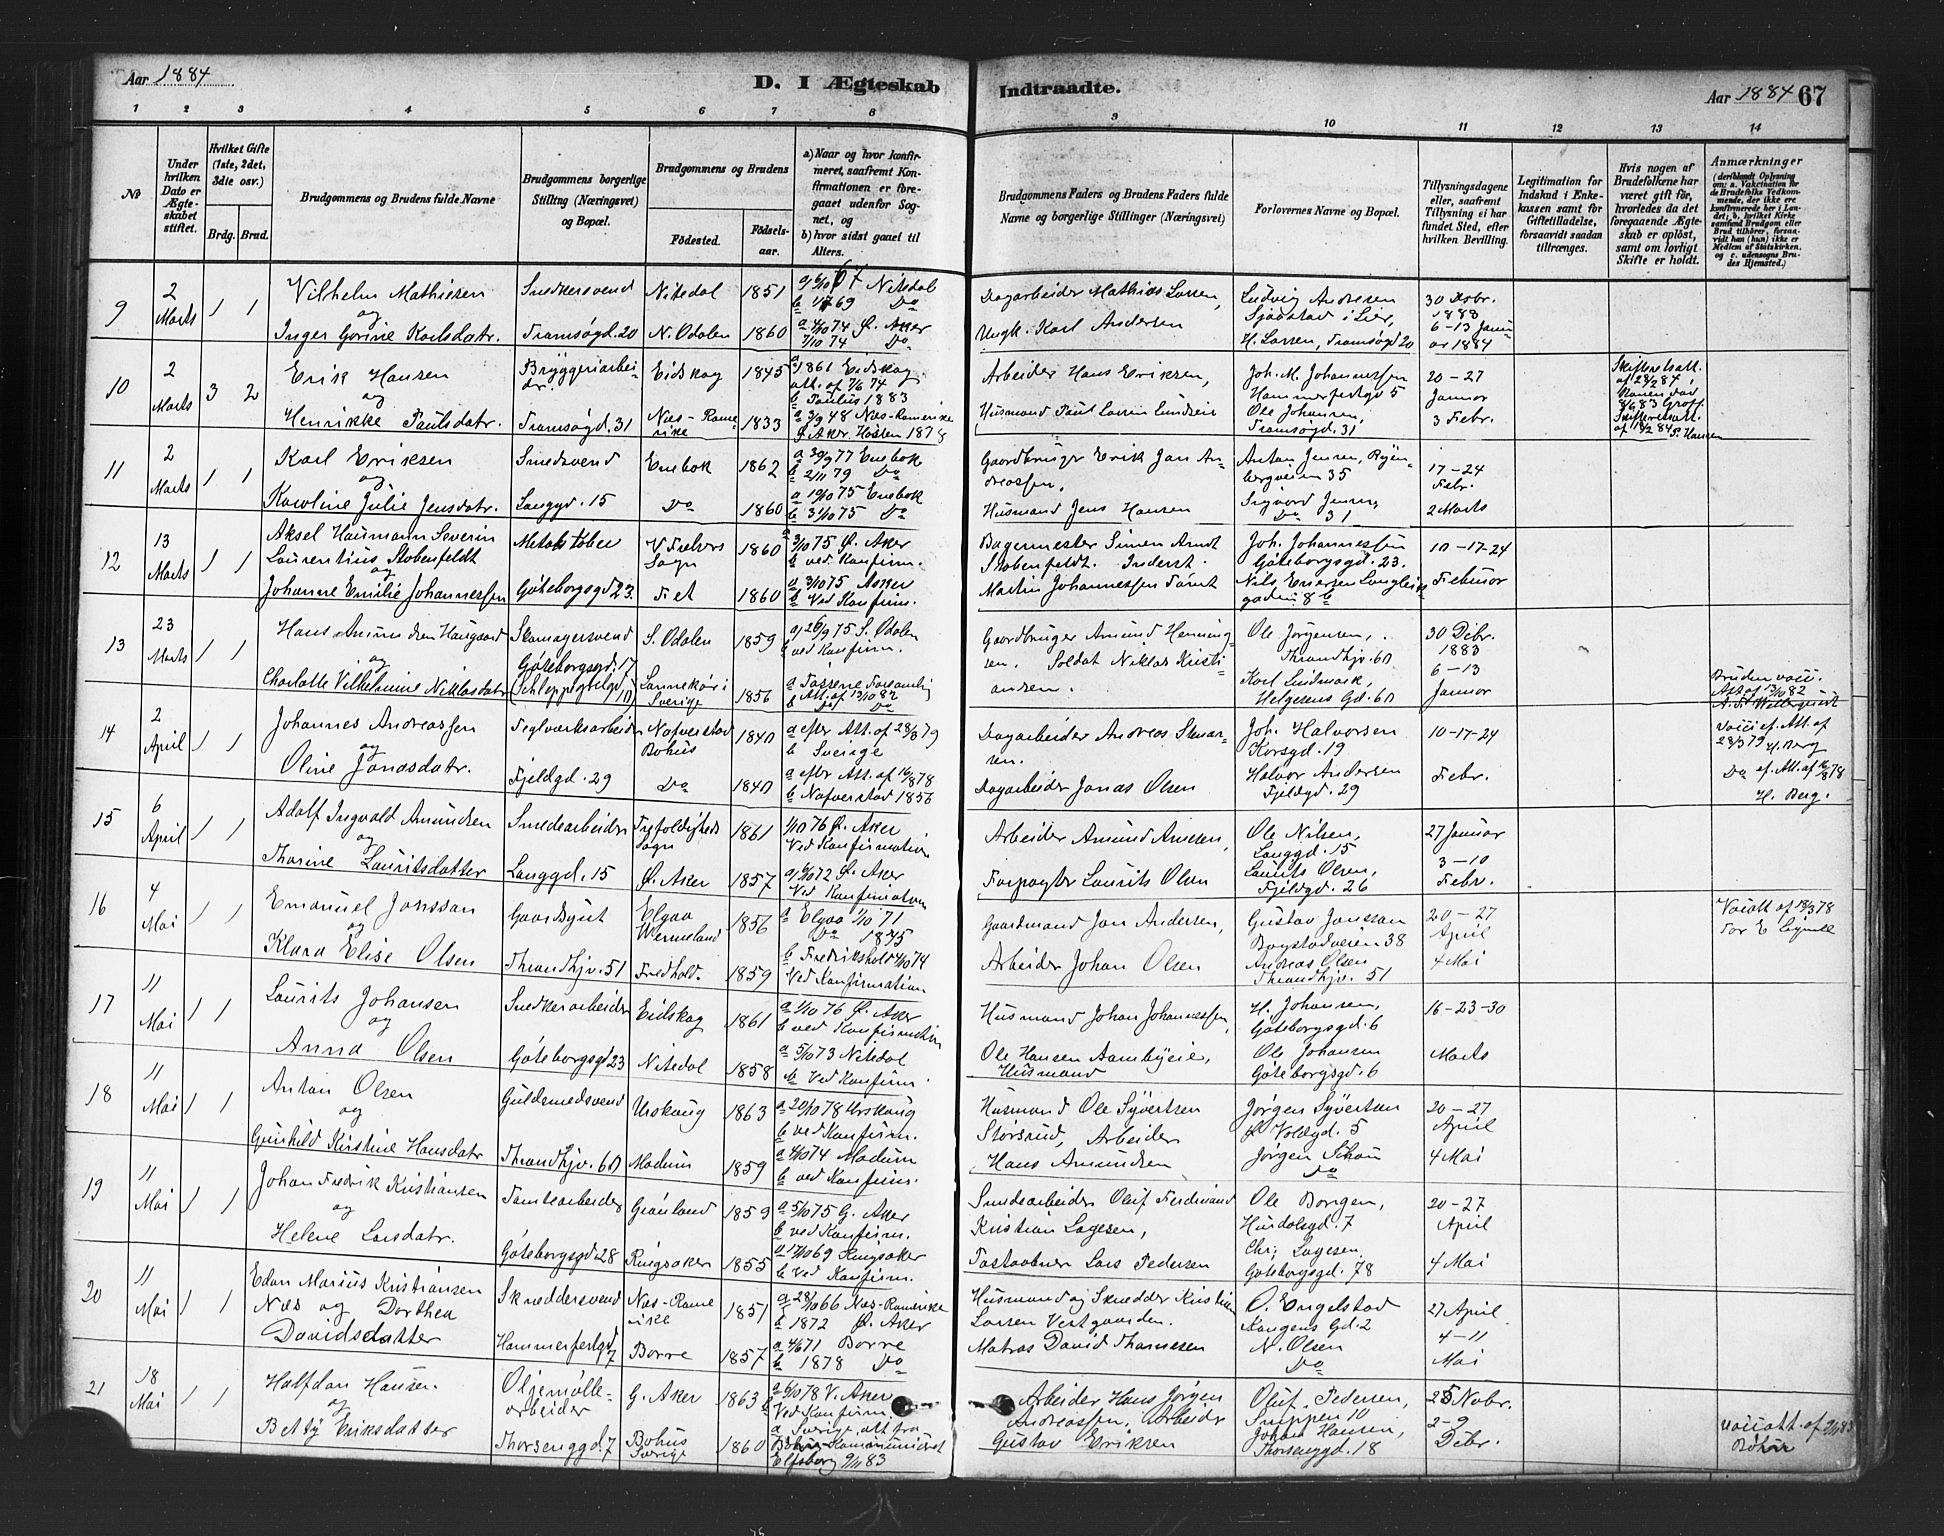 Aar 1884
D. I Ægteskab
Indtraadte.
Aar 1884 67
1 2 3 4 5 6 7 8
9 10 11 12 13 14
No
Under hvilken Dato er Ægteskabet stiftet.
Hvilket Gifte (1ste, 2det, 3die osv.)
Brdg. Brud.
Brudgommens og Brudens fulde Navne
Brudgommens borgerlige Stilling (Næringsvei) og Bopæl.
Brudgommens og Brudens
Fødested.
Fødselsaar.
a) Naar og hvor konfirmeret, saafremt Konfirmationen er foregaaet udenfor Sognet, og
b) hvor sidst gaaet til Alters.
Brudgommens Faders og Brudens Faders fulde Navne og borgerlige Stillinger (Næringsvei)
Forlovernes Navne og Bopæl.
Tillysningsdagene eller, saafremt Tillysning ei har fundet Sted, efter hvilken Bevilling.
Legitimation for Indskud i Enkekassen samt for Giftetilladelse, forsaavidt saadan tiltrænges.
Hvis nogen af Brudefolkene har været gift før, hvorledes da det foregaaende Ægteskab er opløst, samt om lovligt Skifte er holdt.
Anmærkninger
(deriblandt Oplysning om: a. Vakcination for de Brudefolks Vedkommende, der ikke ere konfirmerede her i Landet; b. hvilket Kirkesamfund Brudgom eller Brud tilhører, forsaavidt han (hun) ikke er Medlem af Statskirken, og c. udensogns Brudes Hjemsted.)
9 2 Marts 1 1
Vilhelm Mathiesen
og
Inger Gorine Karlsdatr.
Snedkersvend
Tromsøgd. 20
Nitedal 1851
N. Odalen 1860
a 6/10 67 Nitedal
b 1769 Do
a 4/10 74 Ø. Aker
7/10 74 Do
Dagarbeider Mathias Larsen,
Ungk. Karl Andersen
Ludvig Andresen
Sjaastad i Lier,
H. Larsen, Tromsøgd 20
30 Debr.
1883
6-13 Janu
ar 1884
10 2 Marts 3 2
Erik Hansen
og
Henrikke Paulsdatr.
Bryggeriarbei-
dr.
Tromsøgd. 31
Eidskog 1845
Næs-Rome
rike 1833
a 1861 Eidskog
att. af 7/6 74
b Paulus 1883
a 3/9 48 Næs-Romerike
Ø. Aker. Høsten 1878
Arbeider Hans Eriksen,
Husmand Paul Larsen
Joh. M. Johannessen
Hammerfestgd 5
Ole Johansen,
Tromsøgd. 31
20-27
Januar
3 Febr.
Skifteretsatt.
af 23/2 84,
Konen død
8/6 83
Skifteretsatt.
af 18/2 84 P. Hansen
11 2 Marts 1 1
Karl Eriksen
og
Karoline Julie Jensdatr.
Smedsvend
Langgd. 15
Enebok 1862
Do 1860
a 30/9 77 Enebok
b 2/11 79 Do
a 10/10 75 Enebok
b 31/10 75 Do
Gaardbruger Erik Jan An-
dreassen,
Husmand Jens Hansen
Anton Jensen, Ryen-
bergveien 35
Sigvard Jensen,
Do 31
17-24
Febr.
2 Marts
12 13 Marts 1 1
Aksel Haumann Severin
Laurentius Stobenfeldt
og
Johanne Emilie Johannessen
Metalstøber
Göteborgsgd 23.
V. Frelsers
Sogn 1860
Fet 1860
3/10 75 Ø. Aker
b ved Konfirm.
a 3/10 75 Asker
b Ved Konfirm.
Bagermester Simen Arndt
Stobenfeldt. Inderst.
Martin Johannessen Tomt
Joh. Johannessen
Göteborgsgd. 23.
Nils Eriksen Langleik
gaden 8 b
10-17-24
Februar
13 23 Marts 1 1
Hans Amundsen Haugaard
og
Charlotte Vilhelmine Niklasdatr
Skomagersvend
Göteborgsgd. 17
(Schleppegrelsgd 10)
S. Odalen 1859
Lannekør i
Sverige 1856
a 26/9 75 S. Odalen
b ved Konfirm.
a Tossene Forsamling
b Att. af 13/10 82
Do Do
Gaardbruger Amund Henning-
sen. Soldat Niklas Kristi-
ansen.
Ole Jørgensen,
Throndhjv. 60
Karl Lindmark,
Helgesens Gd. 60
30 Debr.
1883
6-13
Januar
Bruden vacc.
Att af 13/10 82
14 2 April 1 1
Johannes Andreassen
og
Oline Jonasdatr.
Teglverksarbeider
Fjeldgd. 29
Nafverstad
Bohus 1840
Do 1840
a efter Att. af 28/3 79
b Sverige
a efter Att. af 16/8 78
b Nafverstad 1856
Dagarbeider Andreas
Dagarbeider Jonas Olsen
Joh. Halvorsen
Korsgd. 19
Halvor Andersen
Fjeldgd. 29
10-17-24
Febr.
Vacc. ef. Att. af
28/3 79 H. Berg
Do ef. Att. af 16/8 78
H. Berg.
15 6 April 1 1
Adolf Ingvald Amundsen
og
Thorine Lauritsdatter
Smedearbeider
Langgd. 15
Trefoldigheds
Sogn 1861
Ø. Aker 1857
1/10 76 Ø. Aker
Ved Konfirmation
a 6/10 72 Ø. Aker
Ved Konfirmation
Arbeider Amund Amsen,
Forpagter Laurits Olsen
Ole Nilsen,
Langgd. 15
Laurits Olsen,
Fjeldgd. 26
27 Januar
3-10
Febr.
16 4 Mai 1 1
Emanuel Jonssan
og
Klara Elise Olsen
Gaardsgut
Throndhjv. 51
Elgaa
Wermeland 1856
Fredhald. 1859
a Elgaa 1/10 71
Do 1875
b Fredrikshald 4/10 74
Ved Konfirmation
Gaardmand Jon Andersen,
Arbeider Johan Olsen
Gustav Jonssan
Bogstadveien 38
Andreas Olsen
Throndhjv. 51
20-27
April
4 Mai
Vaccatt af 18/3 78
17 11 Mai 1 1
Laurits Johansen
og
Anna Olsen
Snedkerarbeider
Göteborgsgd 23
Eidskog 1861
Nitedal 1858
a 1/10 76 Ø. Aker
b ved Konfirmation
a 5/10 73 Nitedal
b Ved Konfirm.
Husmand Johan Johannessen,
Ole Hansen Aambyeie,
Husmand
H. Johansen,
Göteborgsgd. 6
Ole Johansen
Göteborgsgd. 6
16-23-30
Marts
18 11 Mai 1 1
Anton Olsen
og
Gunhild Kirstine Hansdatr
Guldsmedsvend
Throndhjv. 60
Urskoug 1863
Modum 1859
a 20/10 78 Urskoug
b ved Konfirm.
a 4/10 74 Modum
b ved Konfirm.
Husmand Ole Syvertsen
Størsrud, Arbeider
Hans Amundsen
Jørgen Syvertsen
Ø Voldgd. 5
Jørgen Schou
Do
20-27
April
4 Mai
19 11 Mai 1 1
Johan Fredrik Kristiansen
og
Helene Larsdatr.
Tomtearbeider
Göteborgsgd. 28
Grønland 1859
Ringsaker 1855
a 5/10 75 G. Aker
b ved Konfirm.
a 17/10 69 Ringsaker
b Ved Konfirm.
Smedsarbeider Oluf Ferdinand
Kristian Lagesen,
Fostaabner Lars Pedersen
Ole Borgen,
Heidalsgd. 7
Chr. Lagesen
Göteborgsgd. 78
20-27
April
4 Mai
20 11 Mai 1 1
Edon Marius Kristiansen
Næs og Dorthea
Davidsdatter
Skreddersvend
Hammerfestgd 7
Næs-Rome
rike 1851
Borre 1857
a 28/10 66 Næs-Romerike
b 1872 Ø. Aker
a 4/6 71 Borre
b 1878 Do
Husmand og Skredder Kristian
Larsen Vestgaarden.
Matros David Thomesen
O. Engelstad
Kongens Gd. 2
N. Olsen
Do
27 April
4-11
Mai
21 18 Mai 1 1
Halfdan Hansen
og
Betsy Eriksdatter
Oljemølle-
arbeider
Thorsenggd. 7
G. Aker 1863
Bohus
Sverige 1860
a 6/10 78 V. Aker
b Ved Konfirm
a Sverige, att fra
Elfsborg 9/11 83
Arbeider Hans Jørgen
Andreassen, Arbeider
Gustav Eriksen
Oluf Pedersen,
Snippen 10
Johan Hansen,
Thorsenggd. 18
25 Nobr.
2-9
Debr.
Vaccatt. af 9/11 83